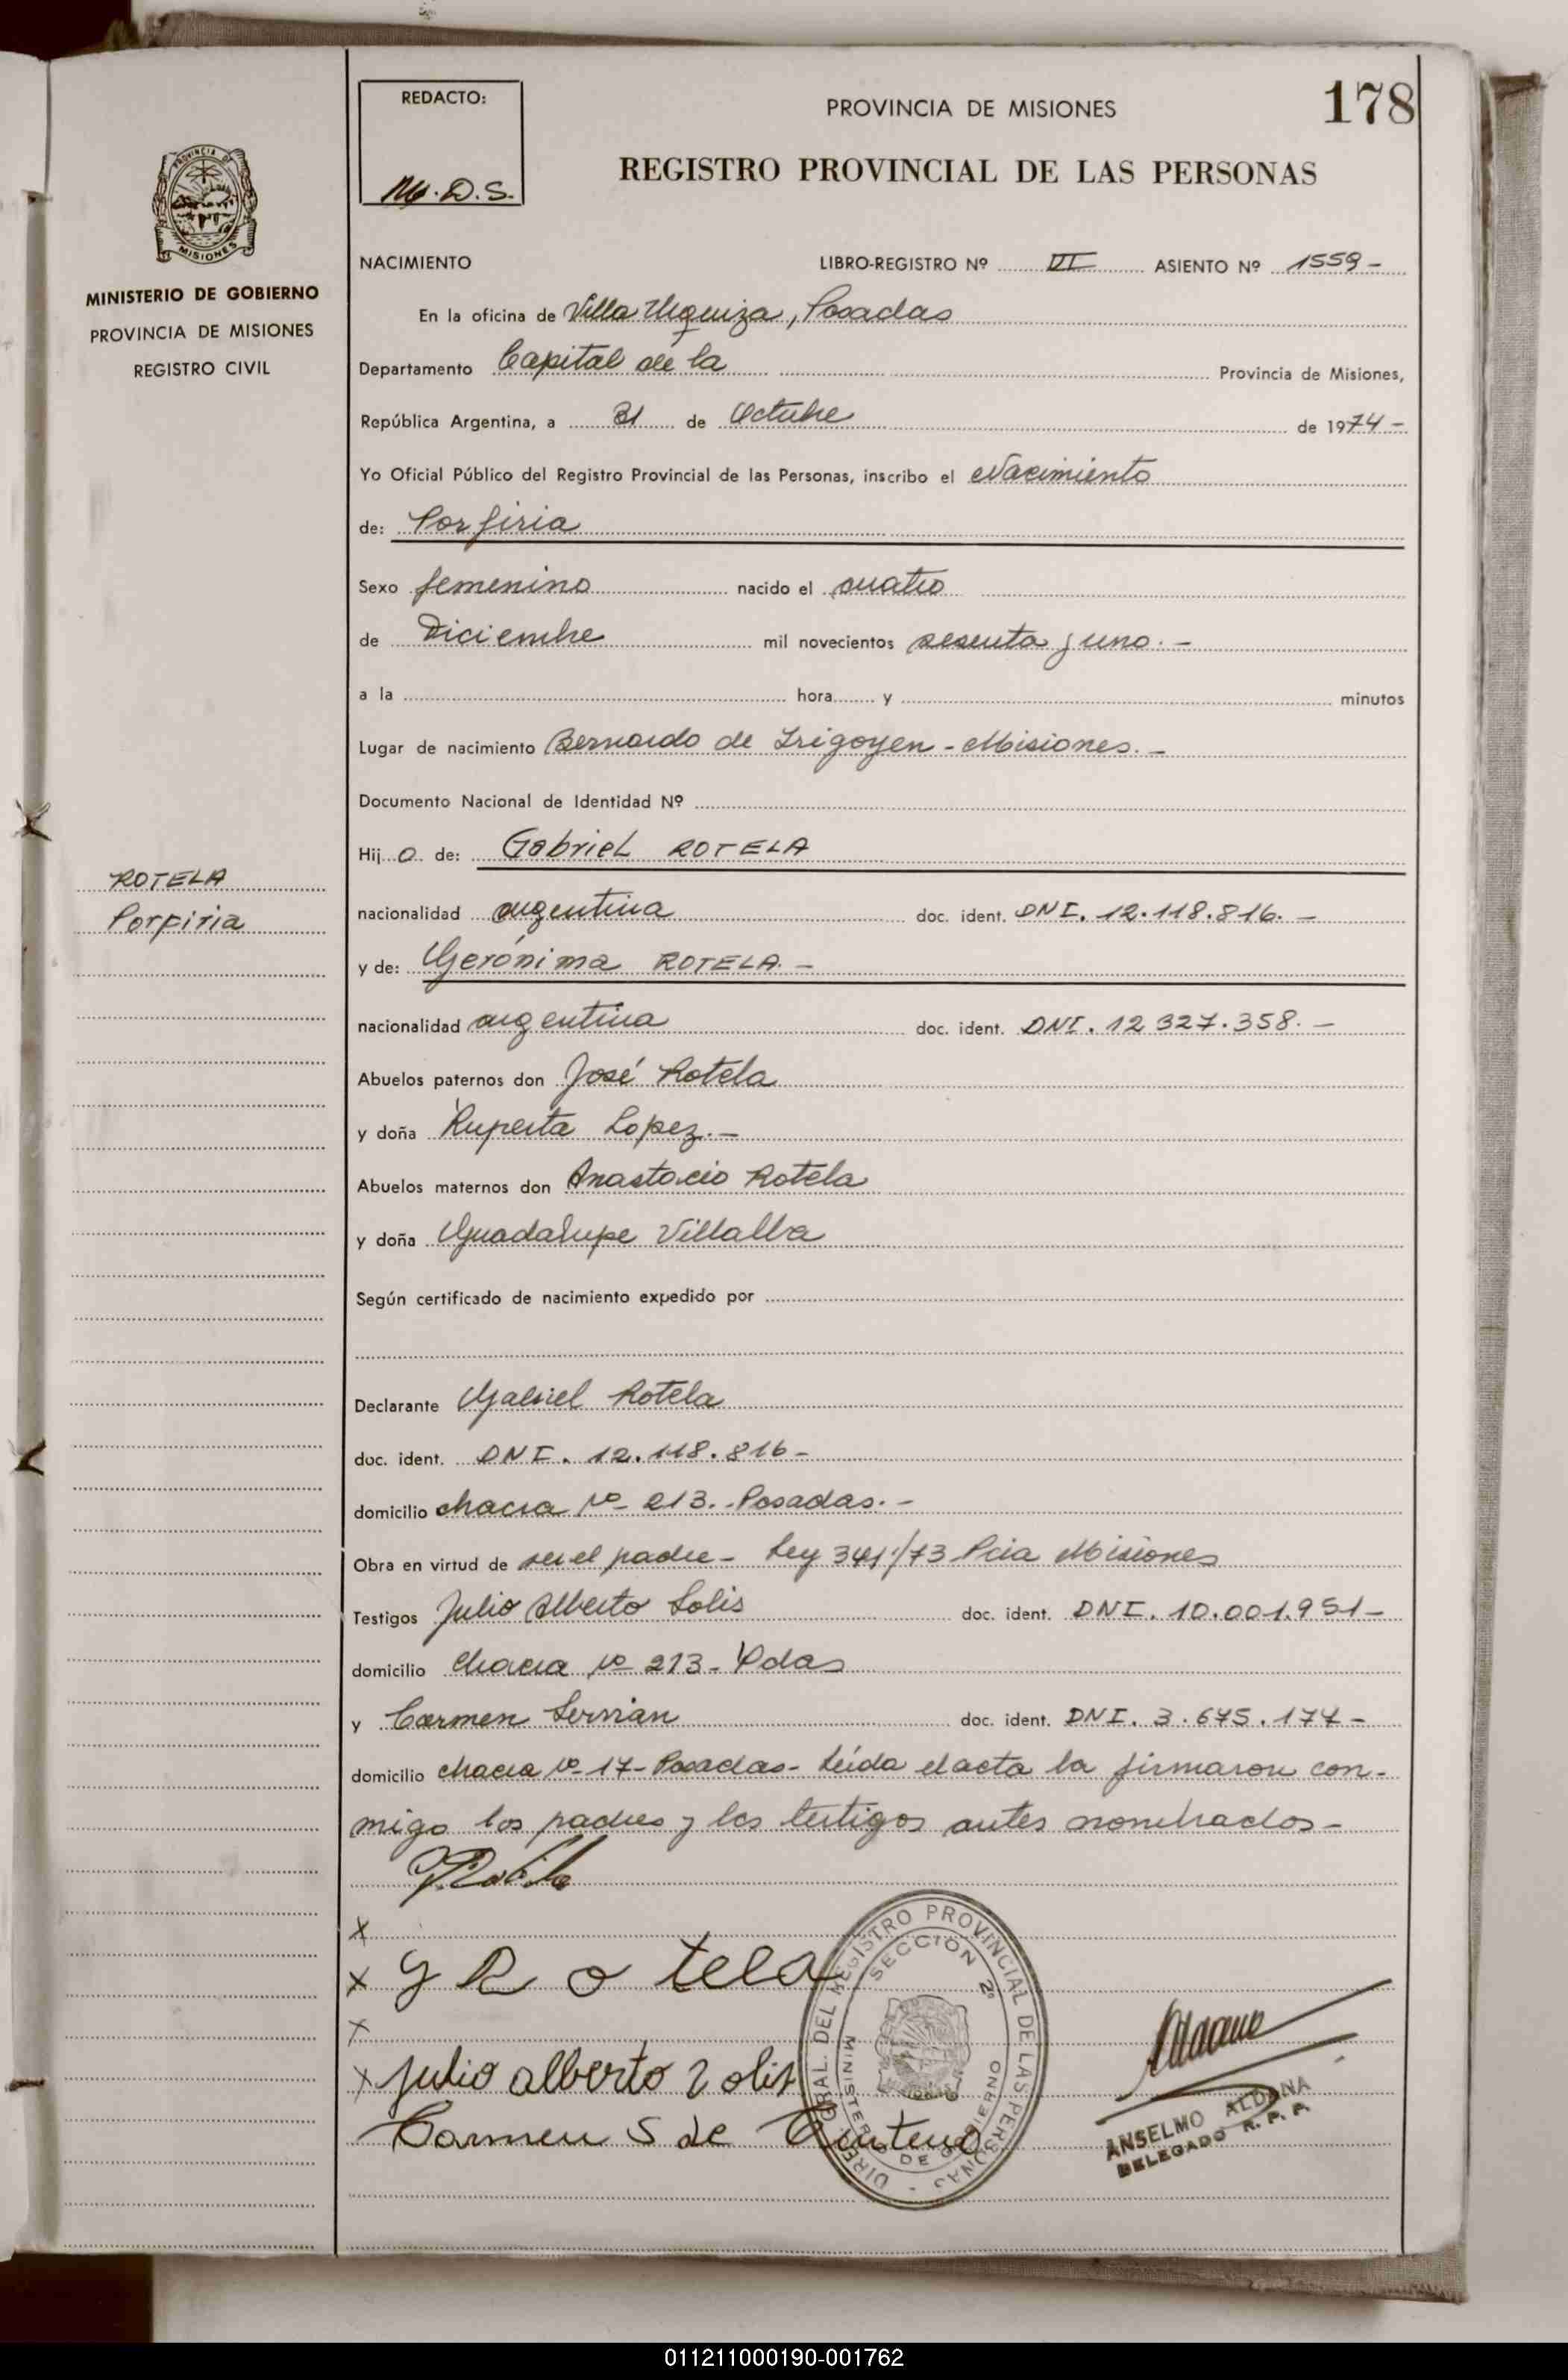 178
REDACTO:
M. D. S.
PROVINCIA DE MISIONES
REGISTRO PROVINCIAL DE LAS PERSONAS
PROVINCIA DE
MISIONES
MINISTERIO DE GOBIERNO
PROVINCIA DE MISIONES
REGISTRO CIVIL
NACIMIENTO LIBRO-REGISTRO Nº ASIENTO Nº 1559-
En la oficina de Villa Urquiza, Posadas
Departamento Capital de la Provincia de Misiones,
República Argentina, a 31 de Octubre de 1974-
Yo Oficial Público del Registro Provincial de las Personas, inscribo el Nacimiento
de: Porfiria
Sexo femenino nacido el cuatro
de Diciembre mil novecientos sesenta y uno.-
a la hora y minutos
Lugar de nacimiento Bernardo de Irigoyen - Misiones.-
Documento Nacional de Identidad Nº
Hij o de: Gabriel ROTELA
ROTELA
Porfiria
nacionalidad argentina doc. ident. DNI. 12.118.816.-
y de: Gerónima ROTELA.-
nacionalidad argentina doc. ident. DNI. 12 327.358.-
Abuelos paternos don José Rotela
y doña Ruperta Lopez.-
Abuelos maternos don Anastacio Rotela
y doña Guadalupe Villalba
Según certificado de nacimiento expedido por
Declarante Gabriel Rotela
doc. ident. DNI. 12.118.816-
domicilio chacra Nº 213. Posadas.-
Obra en virtud de ser el padre - Ley 341/73 Pcia Misiones
Testigos Julio Alberto Solis doc. ident. DNI. 10.001.951-
domicilio chacra Nº 213- Pdas
y Carmen Servian doc. ident. DNI. 3.675.174-
domicilio chacra Nº 17- Posadas- Leída el acta la firmaron con-
migo los padres y los testigos antes nombrados-
x
x G R o tela
x
x Julio alberto Solis
Carmen S de Quinteno
DIREC. GRAL. DEL REGISTRO PROVINCIAL DE LAS PERSONAS
SECCION 2ª
MINISTERIO DE GOBIERNO
ANSELMO ALDANA
DELEGADO R. P. P.
011211000190-001762